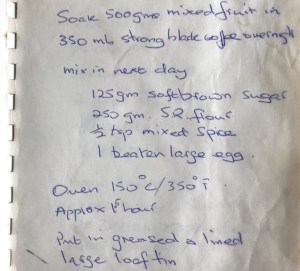 Soak 500gms mixed fruit in
350 mls strong black coffee overnight
mix in next day
125gm soft brown sugar
250 gm. S.R flour
½ tsp mixed spice
1 beaten large egg.
Oven 150°c/350°F
Approx 1 hour
Put in greased & lined
large loaf tin